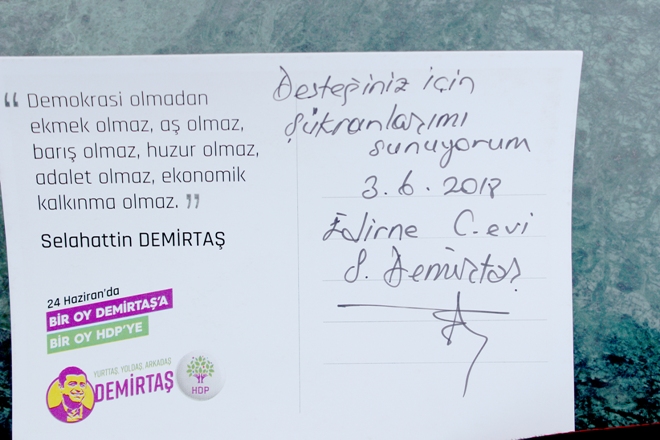 “ Demokrasi olmadan
ekmek olmaz, aş olmaz,
barış olmaz, huzur olmaz,
adalet olmaz, ekonomik
kalkınma olmaz. ”
Selahattin DEMİRTAŞ
24 Haziran'da
BİR OY DEMİRTAŞ'A
BİR OY HDP'YE
YURTTAŞ, YOLDAŞ, ARKADAŞ
DEMİRTAŞ
HDP
Desteğiniz için
şükranlarımı
sunuyorum
3.6.2018
Edirne C.evi
S. Demirtaş